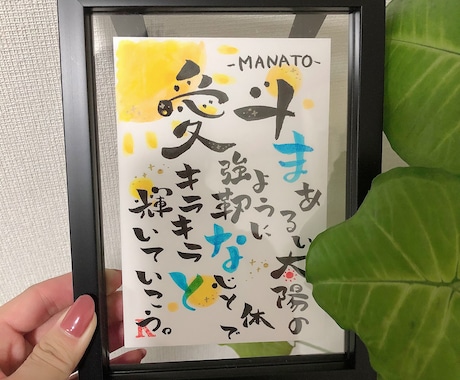 -MANATO-
愛斗
まあるい太陽の
ように
強靭な心と
体で
キラキラと
輝いていこう。